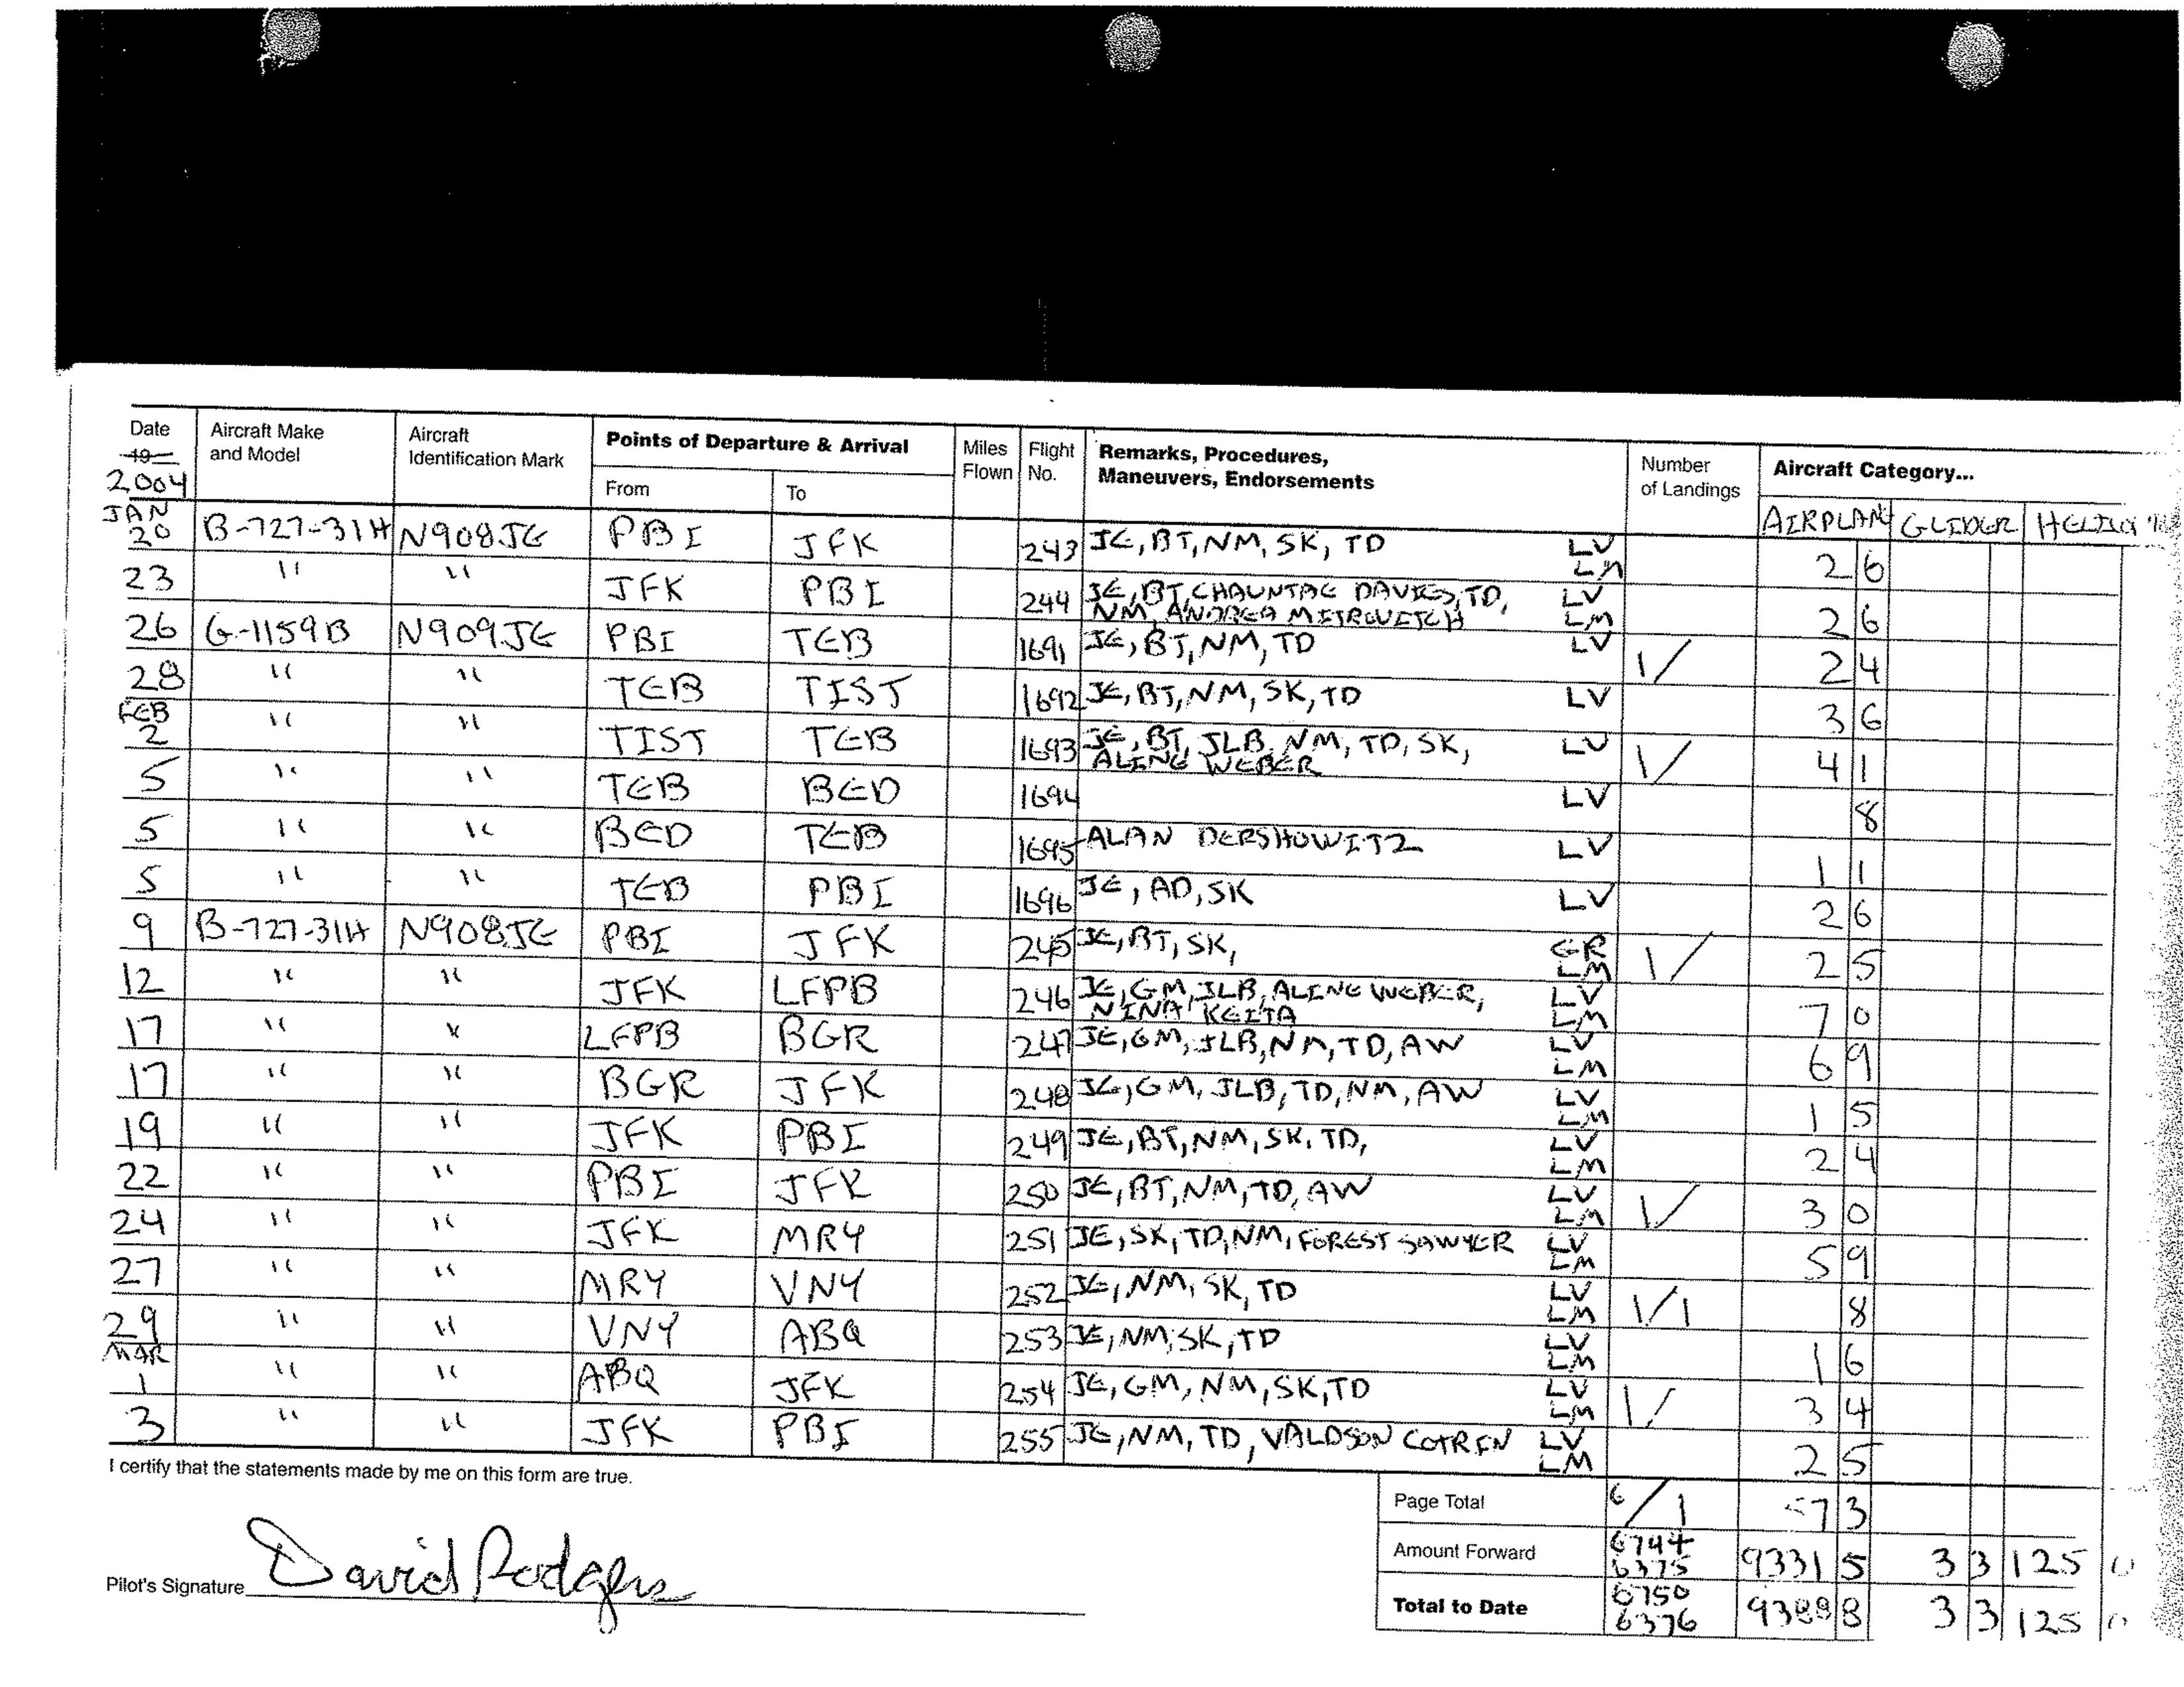 Date Aircraft Make and Model Aircraft Identification Mark Points of Departure & Arrival Miles Flown Flight No. Remarks, Procedures, Maneuvers, Endorsements Number of Landings Aircraft Category...
19
2004 From To AIRPLANE GLIDER
JAN 20 B-727-31H N908JE PBI JFK 243 JE, BT, NM, SK, TD LV LM 2 6
23 " " JFK PBI 244 JE, BT, CHAUNTAE DAVIES, TD, LV
NM, ANDREA MITROVITCH LM 2 6
26 G-1159B N909JE PBI TEB 1691 JE, BT, NM, TD LV 1/ 2 4
28 " " TEB TIST 1692 JE, BT, NM, SK, TD LV 3 6
FEB 2 " " TIST TEB 1693 JE, BT, JLB, NM, TD, SK, LV 1/ 4 1
ALINE WEBER
5 " " TEB BED 1694 LV 8
5 " " BED TEB 1695 ALAN DERSHOWITZ LV 1 1
5 " " TEB PBI 1696 JE, AD, SK LV 2 6
9 B-727-31H N908JE PBI JFK 245 JE, BT, SK, GR LM 1/ 2 5
12 " " JFK LFPB 246 JE, GM, JLB, ALINE WEBER, LV
NINA KEITA LM 7 0
17 " " LFPB BGR 247 JE, GM, JLB, NM, TD, AW LV LM 6 9
17 " " BGR JFK 248 JE, GM, JLB, TD, NM, AW LV LM 1 5
19 " " JFK PBI 249 JE, BT, NM, SK, TD, LV LM 2 4
22 " " PBI JFK 250 JE, BT, NM, TD, AW LV LM 1/ 3 0
24 " " JFK MRY 251 JE, SK, TD, NM, FOREST SAWYER LV LM 5 9
27 " " MRY VNY 252 JE, NM, SK, TD LV LM 1/1 8
29 " " VNY ABQ 253 JE, NM, SK, TD LV LM 1 6
MAR 1 " " ABQ JFK 254 JE, GM, NM, SK, TD LV LM 1/ 3 4
3 " " JFK PBI 255 JE, NM, TD, VALDSON COTRIN LV LM 2 5
I certify that the statements made by me on this form are true.
Page Total 6/1 57 3
Amount Forward 6744 6375 9331 5 3 3 125 0
Pilot's Signature David Rodgers
Total to Date 6750 6376 9388 8 3 3 125 0